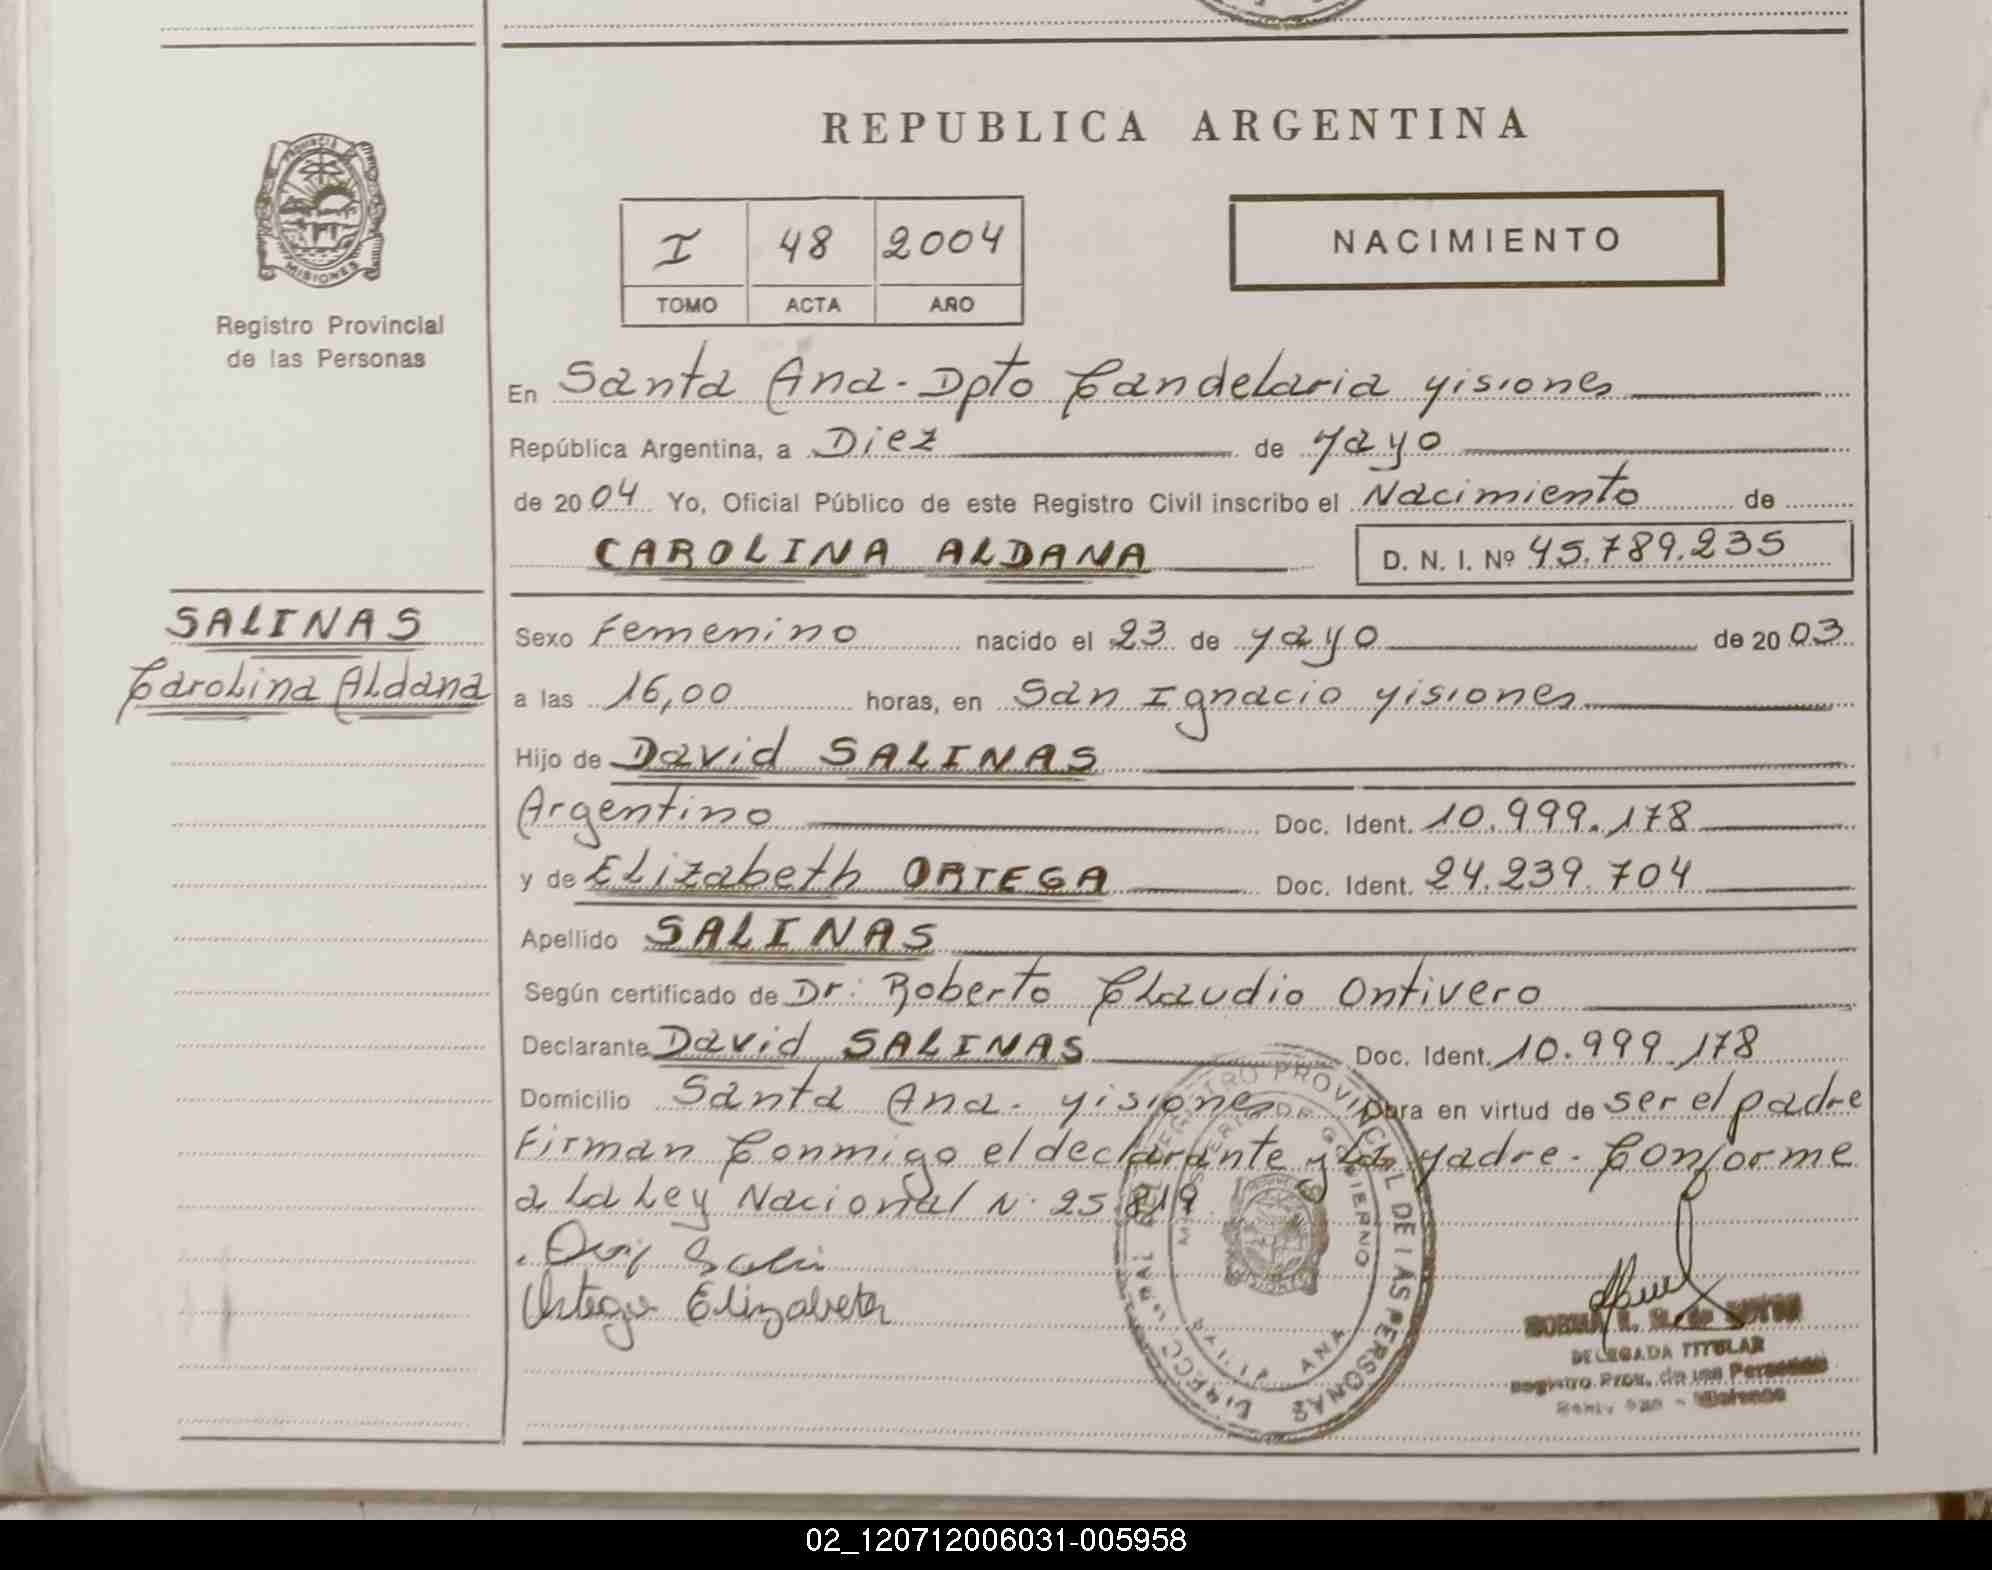 REPUBLICA ARGENTINA
PROVINCIA DE
MISIONES
Registro Provincial
de las Personas
I 48 2004
TOMO ACTA AÑO
NACIMIENTO
En Santa Ana - Dpto Candelaria Misiones
República Argentina, a Diez de Mayo
de 2004 Yo, Oficial Público de este Registro Civil inscribo el Nacimiento de
CAROLINA ALDANA D. N. I. Nº 45.789.235
SALINAS
Carolina Aldana
Sexo Femenino nacido el 23 de Mayo de 2003
a las 16,00 horas, en San Ignacio Misiones
Hijo de David SALINAS
Argentino Doc. Ident. 10.999.178
y de Elizabeth ORTEGA Doc. Ident. 24.239.704
Apellido SALINAS
Según certificado de Dr: Roberto Claudio Ontivero
Declarante David SALINAS Doc. Ident. 10.999.178
Domicilio Santa Ana - Misiones Obra en virtud de ser el padre
Firman Conmigo el declarante y La Madre - Conforme
a La Ley Nacional N· 25 819
Ortega Elizabeth
REGISTRO PROVINCIAL DE LAS PERSONAS
MINISTERIO DE GOBIERNO
ANA
DELEGADA TITULAR
Registro Prov. de las Personas
Misiones
02_120712006031-005958